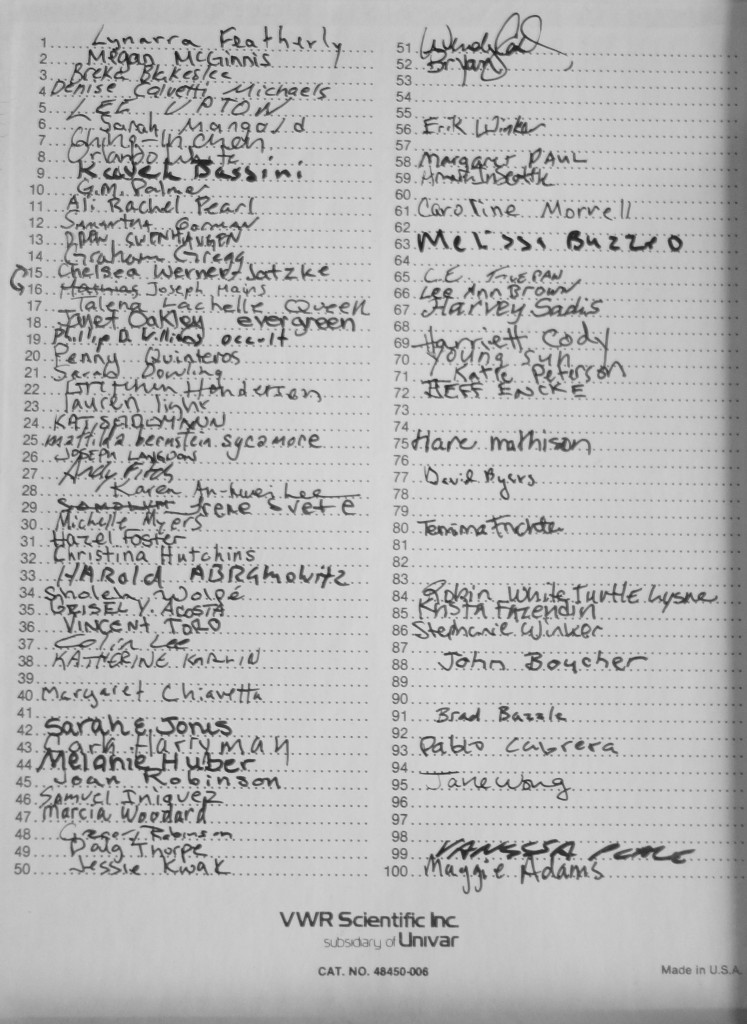 1 Lynarra Featherly
2 Megan McGinnis
3 Breka Blakeslee
4 Denise Calvetti Michaels
5 LEE UPTON
6 Sarah Mangold
7 Ching-In Chen
8 Orlando White
9 Kaveh Bassiri
10 G.M. Palmer
11 Ali Rachel Pearl
12 Samantha Gorman
13
14 Graham Gregg
15 Chelsea Werner-Jatzke
16 Mathias Joseph Mains
17 Talena Lachelle Queen
18 Janet Oakley evergreen
19 Phillip D. occult
20 Penny Quinteros
21 Sarah Dowling
22 Gretchen Henderson
23 lauren light
24 KAT
25 mattilda bernstein sycamore
26 JOSEPH LANGDON
27 Andy Fitch
28 Karen An-hwei Lee
29 Irene
30 Michelle Myers
31 Hazel Foster
32 Christina Hutchins
33 HARold ABRAmowitz
34 Sholeh Wolpé
35 GRISEL Y. ACOSTA
36 VINCENT TORO
37 Colin Lee
38 KATHERINE KARLIN
39
40 Margaret Chiavetta
41
42 Sarah E Jones
43 Carla Harryman
44 Melanie Huber
45 Joan Robinson
46 Samuel Iniguez
47 Marcia Woodard
48 Gregory Robinson
49 Daig Thorpe
50 Jessie Kwak
51 Wendy
52 Bryan
53
54
55
56 Erik
57
58 Margaret PAUL
59
60
61 Caroline Morrell
62
63 Melissa Buzzeo
64
65 C.E.
66 Lee Ann BROWN
67 Harvey Sadis
68
69 Harriett Cody
70 Young Sun
71 Katie Peterson
72 JEFF ENCKE
73
74
75 Hare mathison
76
77 David Byers
78
79
80
81
82
83
84 Robin White Turtle Lysne
85 KRISTA FAZENDIN
86 Stephanie Winker
87
88 John Boucher
89
90
91 Brad
92
93 Pablo Cabrera
94
95 Jane Wong
96
97
98
99 VANESSA PLACE
100 Maggie Adams
VWR Scientific Inc.
subsidiary of Univar
CAT. NO. 48450-006
Made in U.S.A.